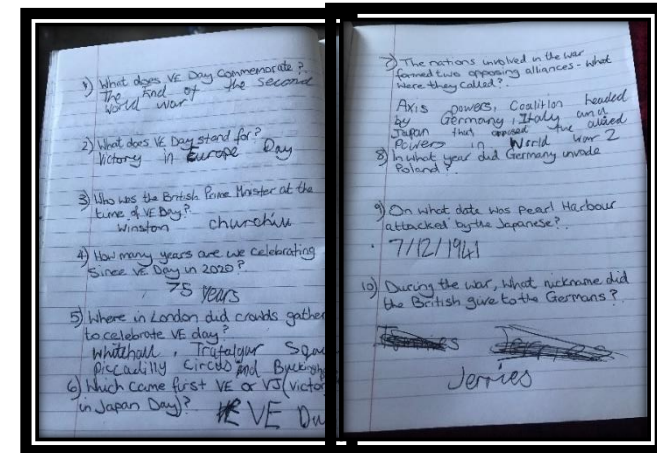 1) What does VE Day Commemorate?
The End of the Second
World War
2) What does VE Day stand for?
Victory in Europe Day
3) Who was the British Prime Minister at the
time of VE Day?
Winston churchill
4) How many years are we celebrating
Since VE Day in 2020?
75 Years
5) Where in London did crowds gather
to celebrate VE day?
Whitehall, Trafalgar Squa
Piccadilly Circus and Buckingh
6) Which came first VE or VJ (Victor
in Japan Day)?
VE Da
7) The nations involved in the war
formed two opposing alliances - what
were they called?
Axis powers, Coalition headed
by Germany, Italy and
Japan that opposed the allied
Powers in World War 2
8) In what year did Germany invade
Poland?
9) On what date was Pearl Harbour
attacked by the Japanese?
7/12/1941
10) During the war, what nickname did
the British give to the Germans?
Jerries